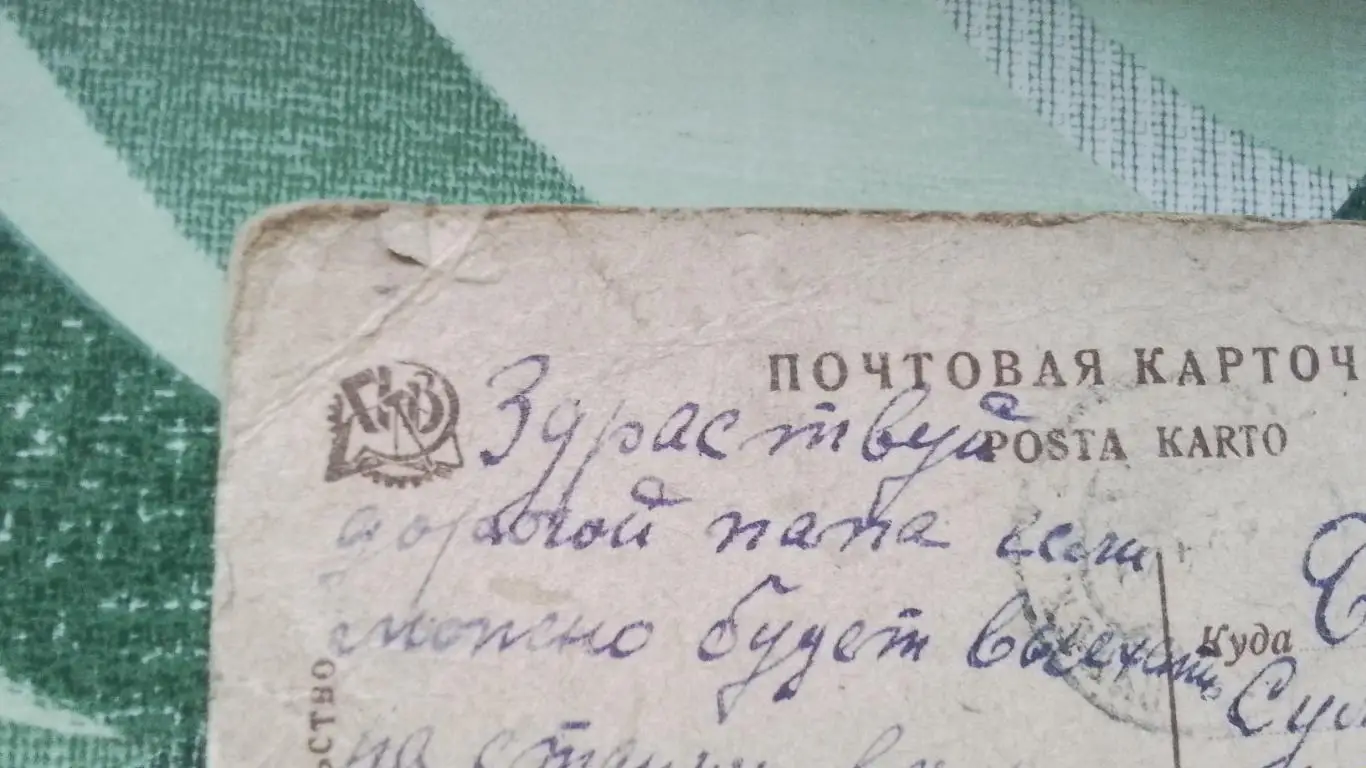 ПОЧТОВАЯ КАРТОЧ
POSTA KARTO
Здраствуй
дорогой папа если
можно будет выехать
на
Куда
Сул
ЬСТВО